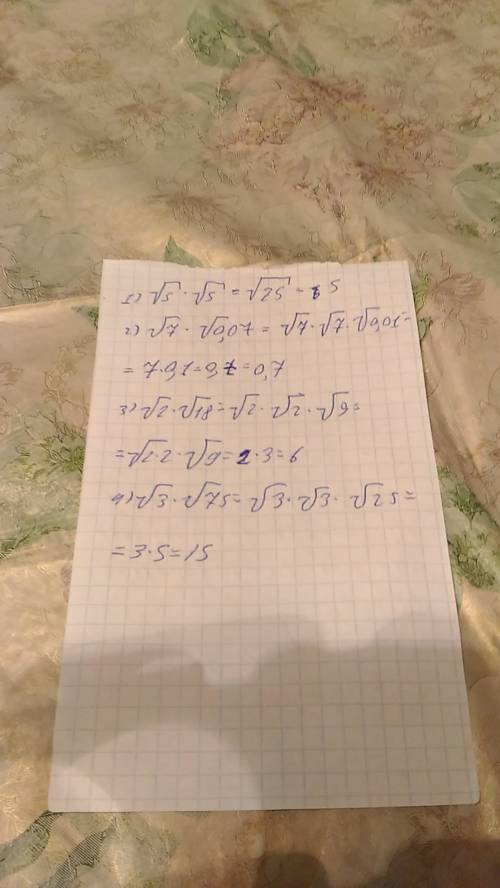 1) √5 · √5 = √25 = 5
2) √7 · √0,07 = √7 · √7 · √0,01 =
= 7 · 0,1 = 0,7 = 0,7
3) √2 · √18 = √2 · √2 · √9 =
= √2 · 2 · √9 = 2 · 3 = 6
4) √3 · √75 = √3 · √3 · √25 =
= 3 · 5 = 15